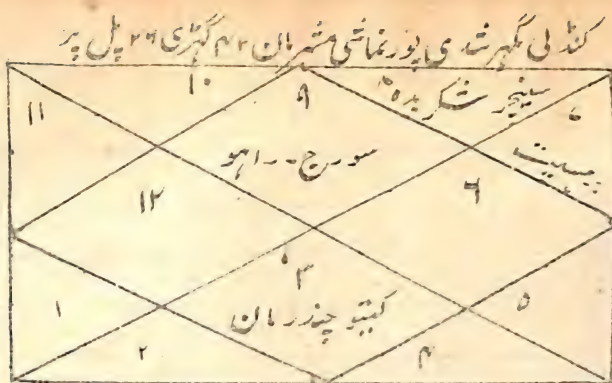 کنڈلی مگہر شدی پورنماشی مشرمان ۴۲ گہڑی ۲۶ پل پر
۱۰
۱۱ ۹ سینچر شکر بدھ ۸ ۷
سورج - راہو برسپت
۱۲ ۶
۳
۱ کیتو چندرمان ۵
۲ ۴